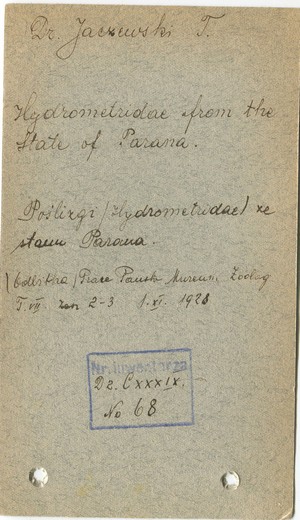 Dr. Jaczewski T.
Hydrometridae from the
State of Parana.
Poślizgi (Hydrometridae) ze
stanu Parana.
(Odbitka) Prace Państ. Museum Zoolog
T. VII. zesz 2-3 1. XI. 1928
Nr. inwentarza
Dz. CXXXIX.
No 68